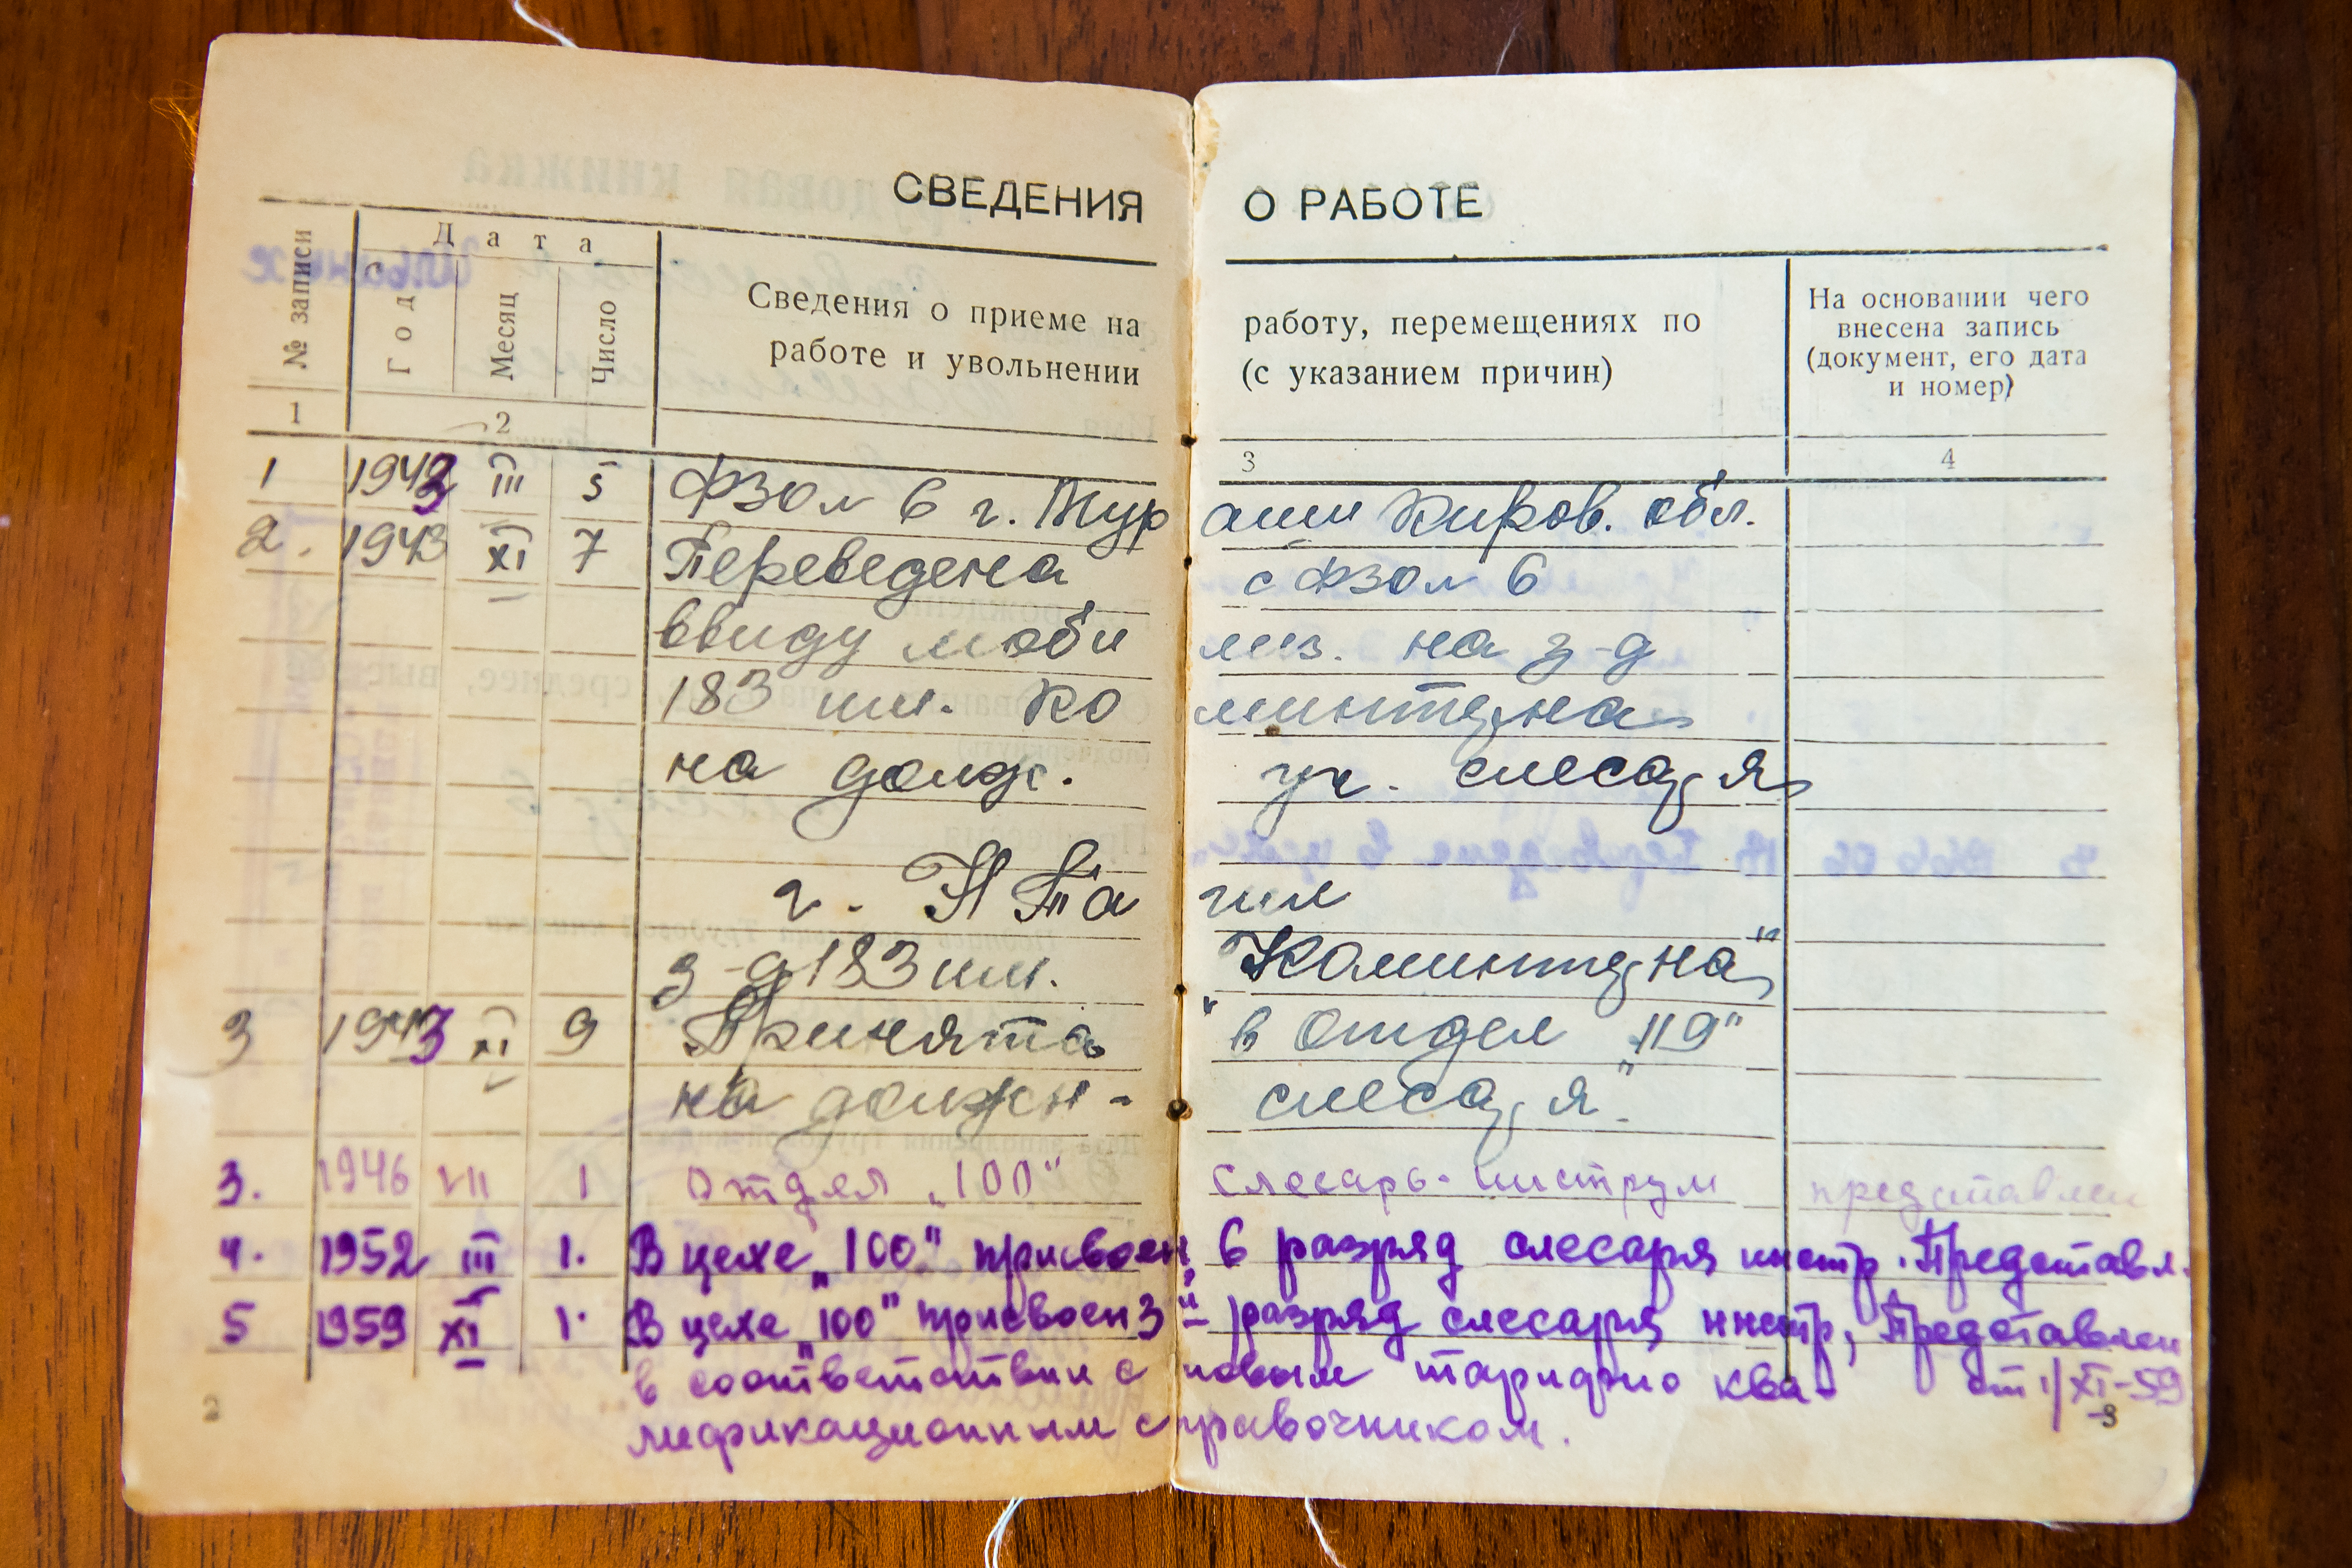 СВЕДЕНИЯ О РАБОТЕ
№ записи
Дата
Год
Месяц
Число
Сведения о приеме на работу, перемещениях по
работе и увольнении (с указанием причин)
На основании чего
внесена запись
(документ, его дата
и номер)
1 2 3 4
1 1943 III 5 ФЗО № 6 г. Мураши Киров. обл.
2. 1943 XI 7 Переведена с ФЗО № 6
ввиду мобилиз. на з-д
183 им. Коминтерна
на долж. уч. слесаря
г. Н Тагил
з-д 183 им. "Коминтерна"
3 1943 XI 9 Принята в отдел "119"
на должн- "слесаря"
3. 1946 VII 1 Отдел „100" слесарь-инструм представлен
4. 1952 III 1. В цехе „100" присвоен 6 разряд слесаря инстр. Представл.
5 1959 XI 1. В цехе „100" присвоен 3й разряд слесаря инстр, Представлен
в соответствии с новым тарифно ква- от 1/XI-59
лификационным справочником.
2 3